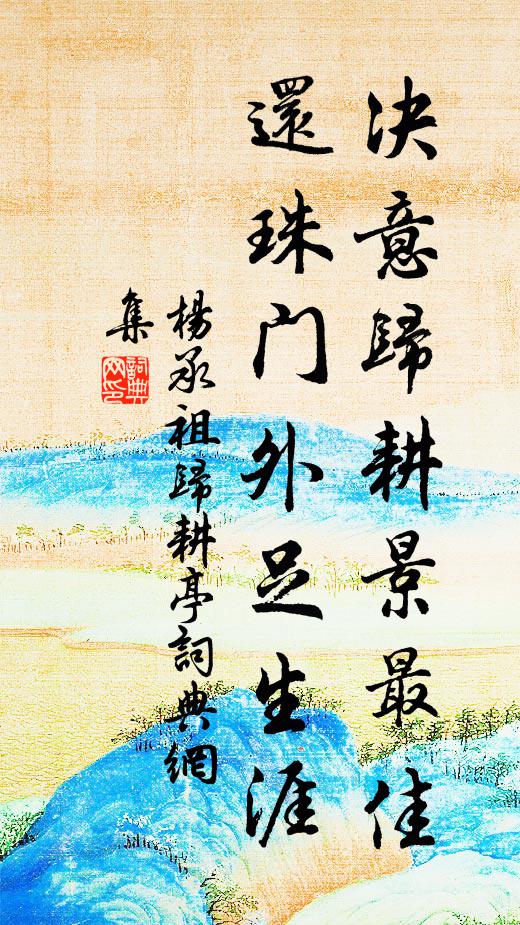 決意歸耕景最佳
還珠門外足生涯
楊承祖歸耕亭詞典網
集
詞典网印